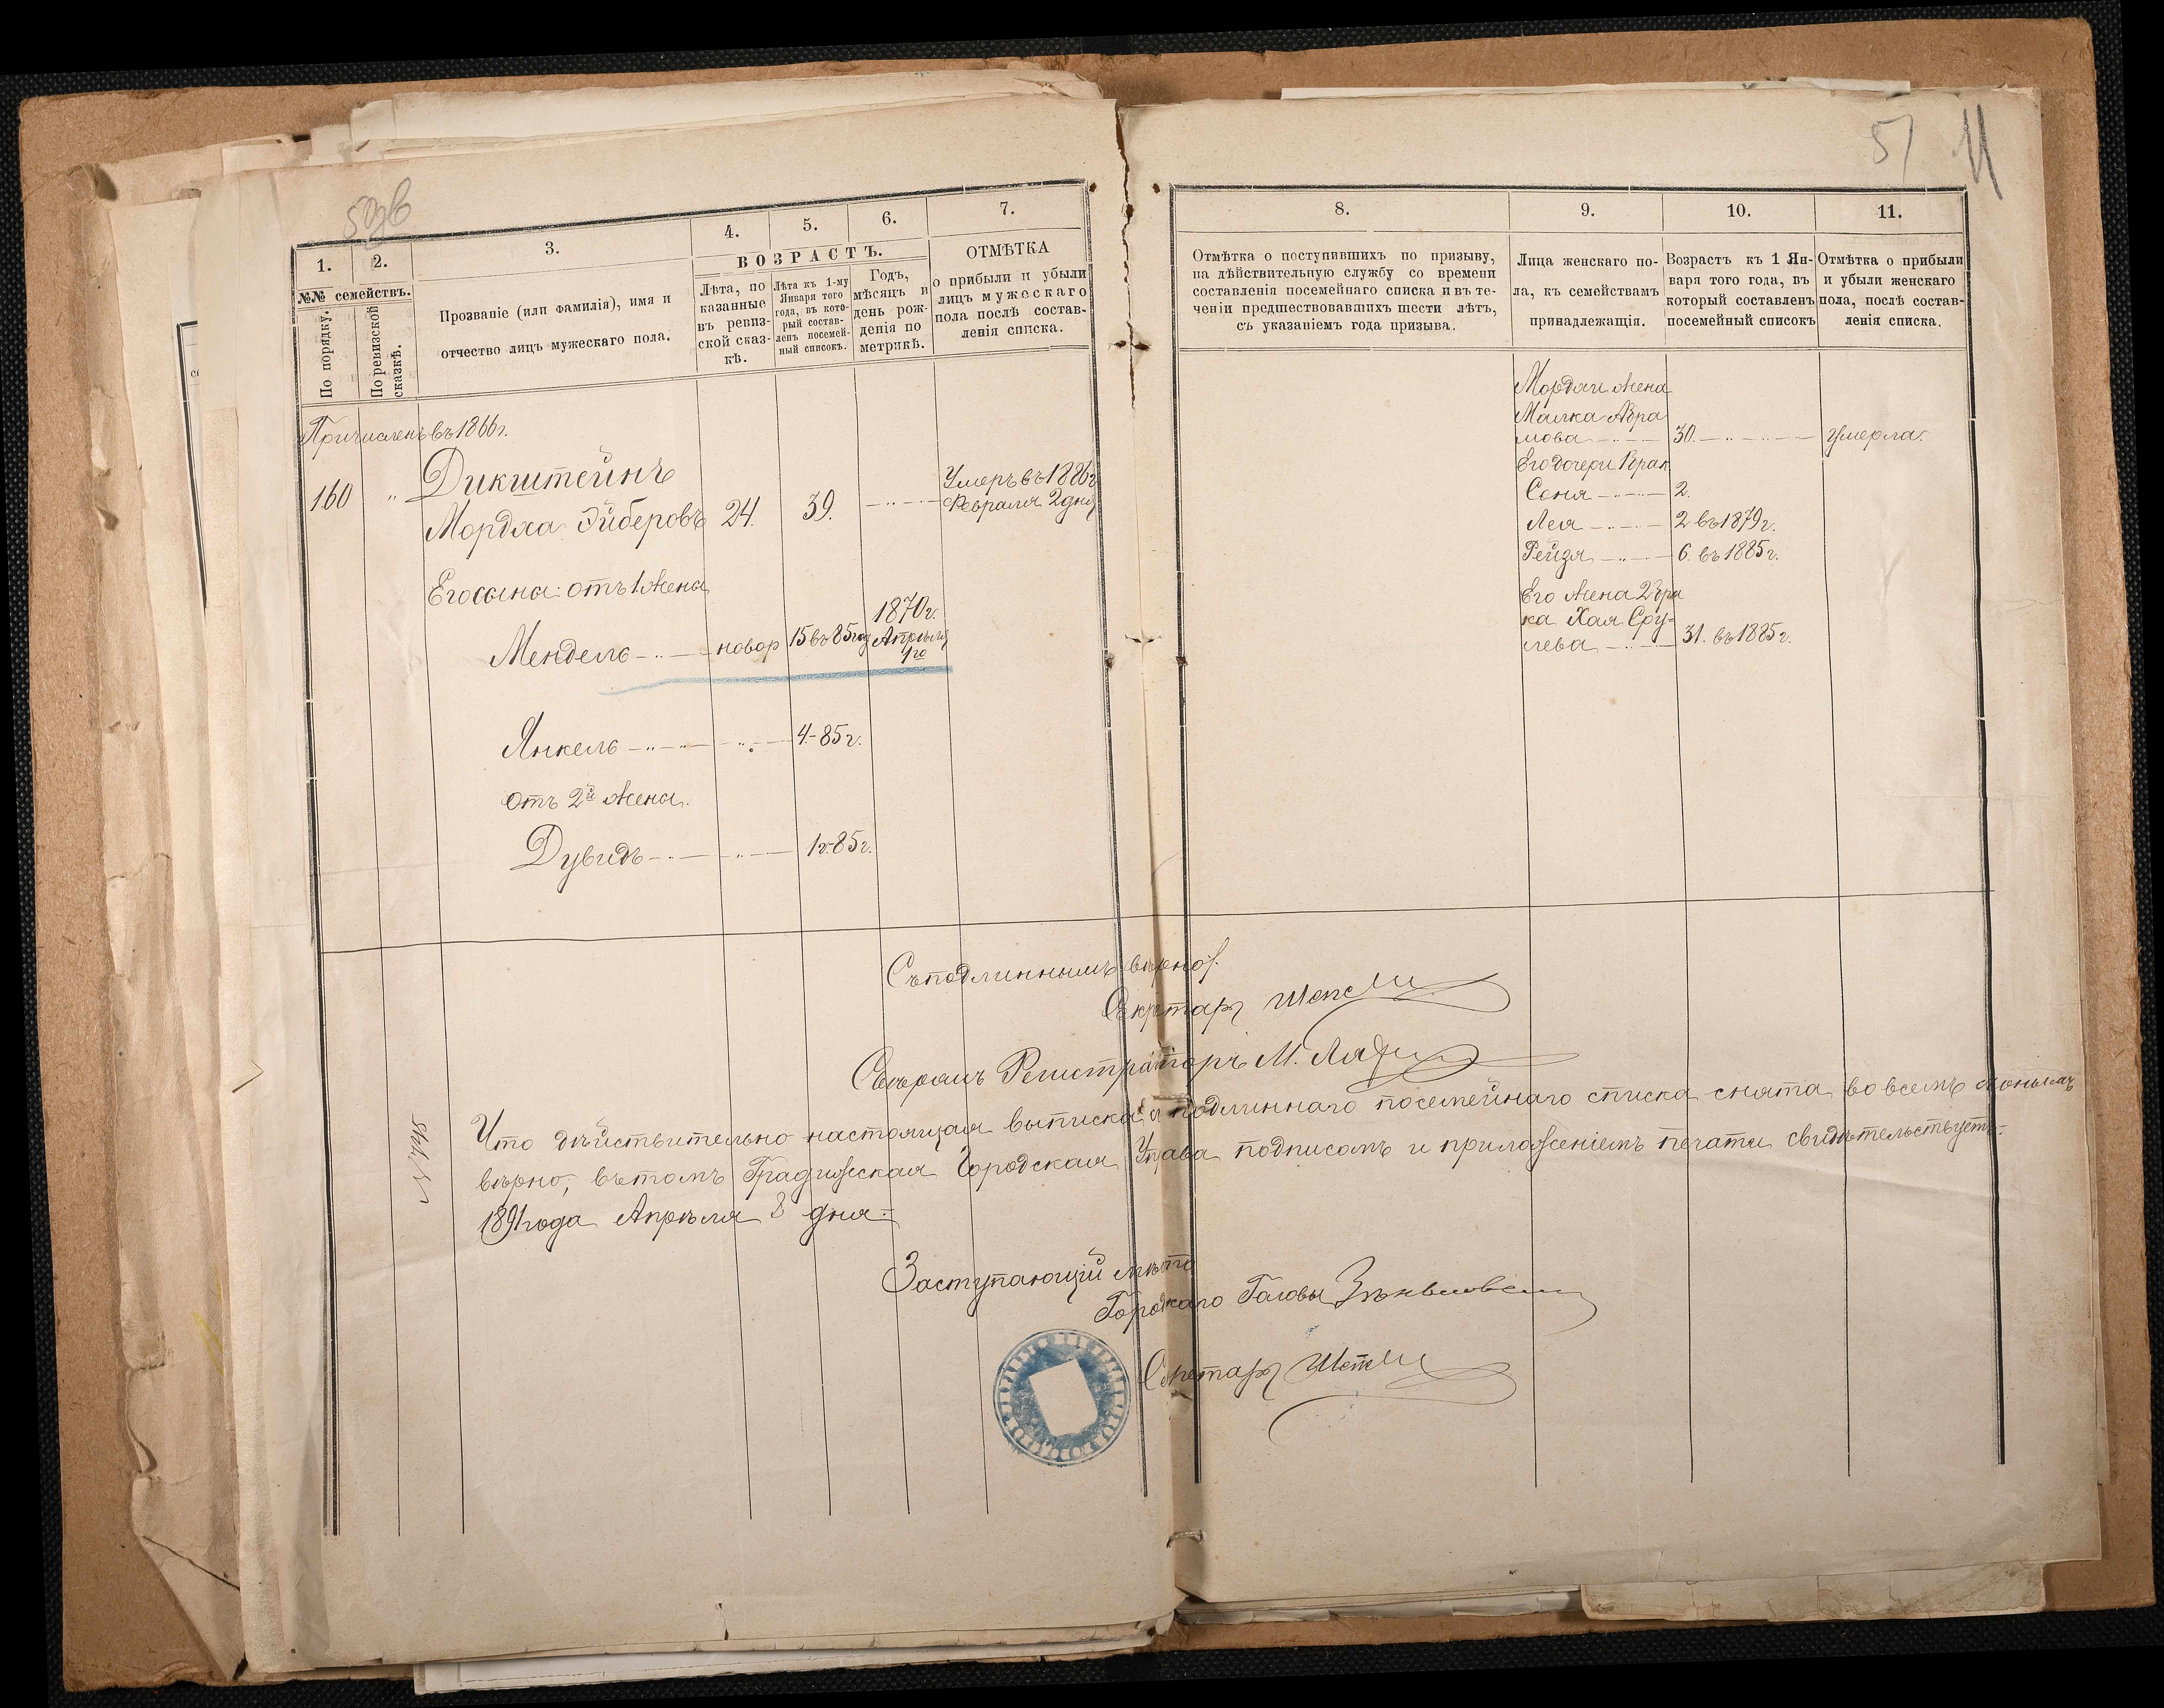 1.
2.
3.
4.
5.
6.
7.
№№ семействъ.
По порядку.
По ревизской сказкѣ.
Прозваніе (или фамилія), имя и
отчество лицъ мужескаго пола.
ВОЗРАСТЪ.
Лѣта, по
казанные
въ ревиз-
ской сказ-
кѣ.
Лѣта къ 1-му
Января того
года, въ кото-
рый состав-
ленъ посемей-
ный списокъ.
Годъ,
мѣсяцъ и
день рож-
денія по
метрикѣ.
ОТМѢТКА
о прибыли и убыли
лицъ мужескаго
пола послѣ состав-
ленія списка.
Причисленъ въ 1866 г.
160 " Дикштейнъ
Мордха Эйберовъ 24. 39. Умеръ въ 1886 г.
Февраля 2 дня
Его сына: отъ 1 жены
Мендель новор 15 въ 85 году 1870 г.
Апрѣля
1го
Янкель " 4-85 г.
отъ 2й жены.
Дувидъ " 1 г.-85 г.
51
11
8.
9.
10.
11.
Отмѣтка о поступившихъ по призыву,
на дѣйствительную службу со времени
составленія посемейнаго списка и въ те-
ченіи предшествовавшихъ шести лѣтъ,
съ указаніемъ года призыва.
Лица женскаго по-
ла, къ семействамъ
принадлежащія.
Возрастъ къ 1 Ян-
варя того года, въ
который составленъ
посемейный списокъ
Отмѣтка о прибыли
и убыли женскаго
пола, послѣ состав-
ленія списка.
Мордхи жена
Малка Абра
мова 30. умерла.
Его дочери
Соня 2.
Лея 2 въ 1879 г.
Рейзя 6. въ 1885 г.
Его жена 2 бра
ка Хая Сру-
лева 31. въ 1885 г.
Съ подлиннымъ вѣрно:
Секретарь
Регистраторъ М.
Что дѣйствительно настоящая выписка съ подлиннаго посемейнаго списка снята во всемъ
вѣрно, въ томъ Градижская Городская Управа подписомъ и приложеніемъ печати свидѣтельствуетъ.
1891 года Апрѣля 8 дня.
Заступающій мѣсто
Городскаго Головы
Секретарь